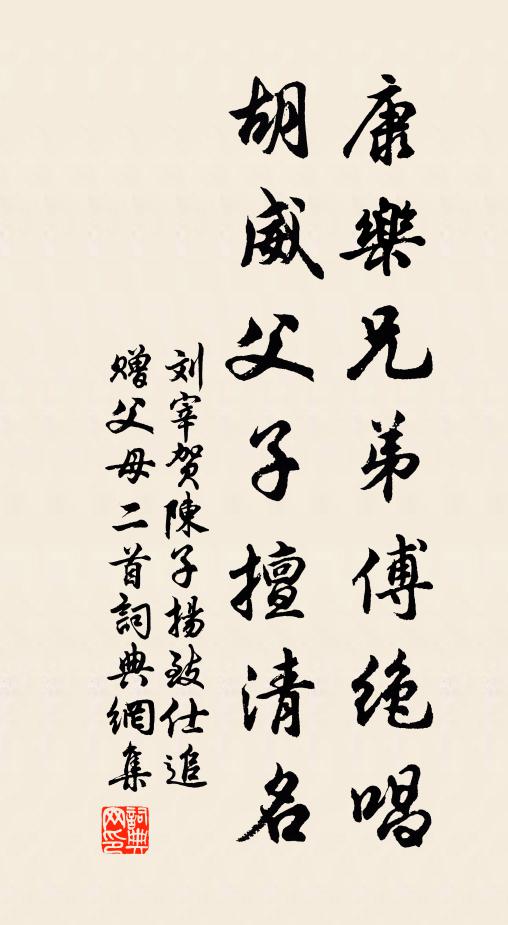 康樂兄弟傅絶唱
胡威父子擅清名
刘宰賀陳子揚致仕追
贈父母二首詞典網集
詞典
网印